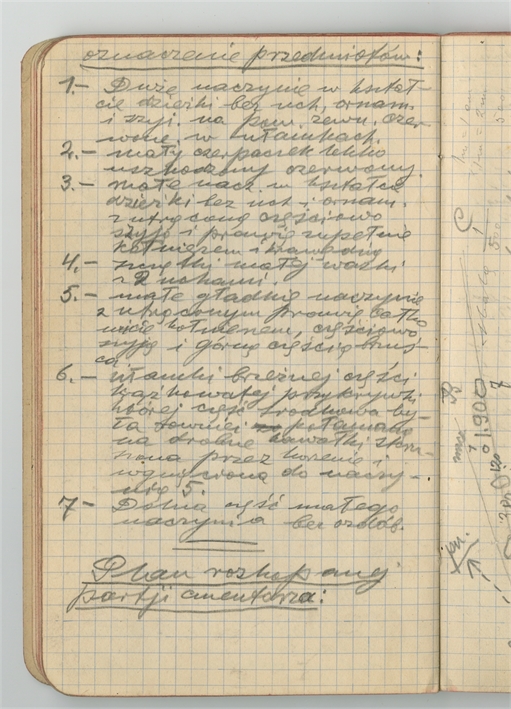 oznaczenie przedmiotów:
1.- Duże naczynie w kształ-
cie dzieżki bez uch, ornam.
i szyji. na pow. zewn. czer-
wone w ułamkach.
2.- mały czerpaczek lekko
uszkodzony czerwony.
3.- małe nacz. w kształcie
dzieżki bez uch i ornam.
z utrąconą częściowo
szyją i prawie zupełnie
kołnierzem i krawędzią
4.- małej wazki
z 2 uchami.
5.- małe gładkie naczynie
z utrąconym prawie całko
wicie kołnierzem, częściowo
szyją i górną częścią brzuś-
ca
6.- ułamki brzeżnej części
przykrywki
której część środkowa by-
ła również połamana
na drobne kawałki
przez korzenie i
wgnieciona do naczy-
nia 5.
7- Dolna część małego
naczynia bez ozdób.
Plan rozkopanej
partji cmentarza:
1900
7